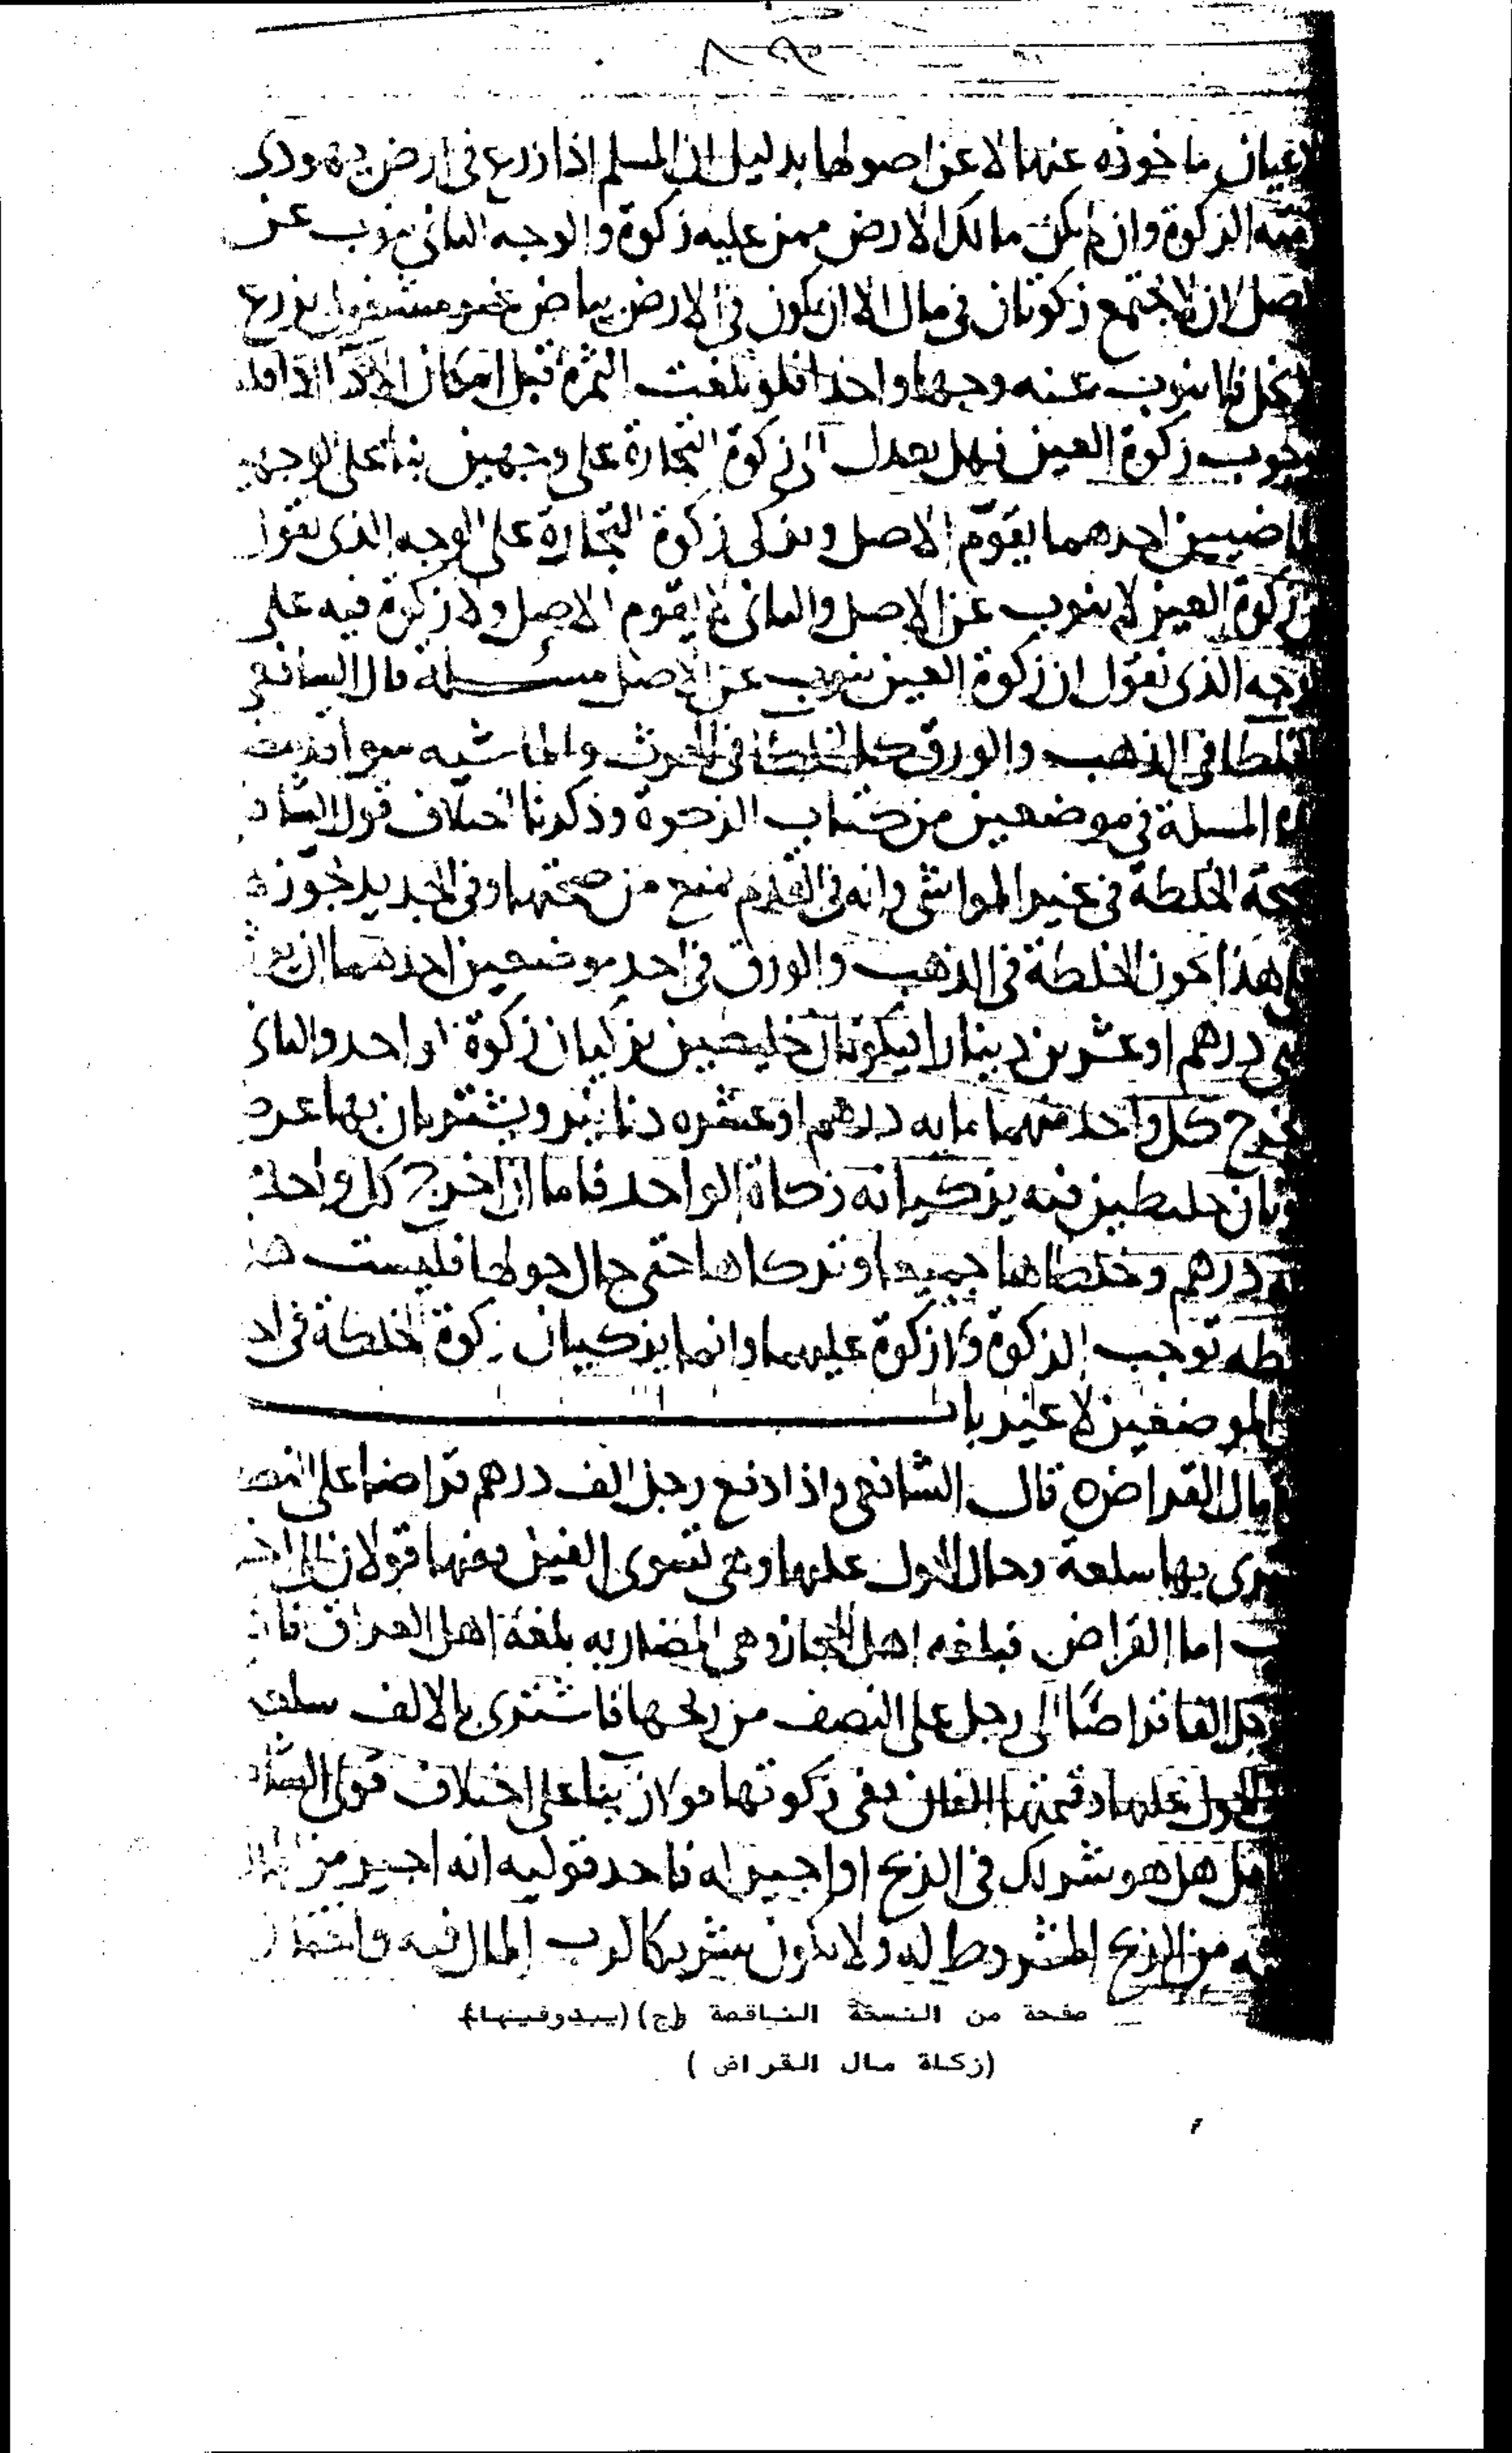 الاعيان ماخوذه عنها لا عن اصولها بدليل ان المسلم اذا زرع في ارض يهودي
الزكوة وان لم يكن مالك الارض ممن عليه زكوة والوجه الثاني ينوب عن
لان لا يجتمع زكوتان في مال الا ان يكون في الارض بياض غير مشغول بزرع
نخل فلا ينوب عنه وجها واحدا فلو بلغت الثمرة قبل امكان
وجوب زكوة العين فهل يعدل الى زكوة التجارة على وجهين بناء على الوجهين
احدهما يقوم الاصل ويزكي زكوة التجارة على الوجه الذي نقول
زكوة العين لا ينوب عن الاصل والثاني لم يقوم الاصل ولا زكوة فيه على
الوجه الذي نقول ان زكوة العين ينوب عن الاصل مسئلة قال الشافعي
الخلطا في الذهب والورق كالخلطا في الحرث والماشيه سوا
المسلة في موضعين من كتاب الزكوة وذكرنا اختلاف قول
صحة الخلطة في غير المواشي وانه في القديم يمنع من صحتها وفي الجديد يجوزها
هذا يكون الخلطة في الذهب والورق في احد موضعين احدهما ان
درهم او عشرين دينارا فيكونان خليطين يزكيان زكوة الواحد والثاني
يخرج كل واحد منهما مايه درهم او عشره دنانير ويشتريان بها
خليطين فيه يزكيانه زكاة الواحد فاما ان اخرج كل واحد
درهم وخلطاها جميعا وتركاها حتى حال حولها فليست
توجب الزكوة ولا زكوة عليهما وانما يزكيان زكوة الخلطة في
الموضعين لا غير باب
مال القراض قال الشافعي واذا دفع رجل الف درهم قراضا على
بها سلعة وحال الحول عليها وهي تسوى الفين ففيها قولان
اما القراض فبلغه اهل الحجاز وهي المضاربه بلغة اهل العراق
الفا قراضًا الى رجل على النصف من ربحها فاشترى بالالف
الحول عليها وقيمتها الفان ففي زكوتها قولان بناء على اختلاف قول
هل هو شريك في الربح او اجير له فاحد قوليه انه اجير
من الربح المشروط له ولا يكون شريكا لرب المال فيه
صفحة من النسخة الناقصة (ج) (يبدوفيها)
(زكاة مال القراض)